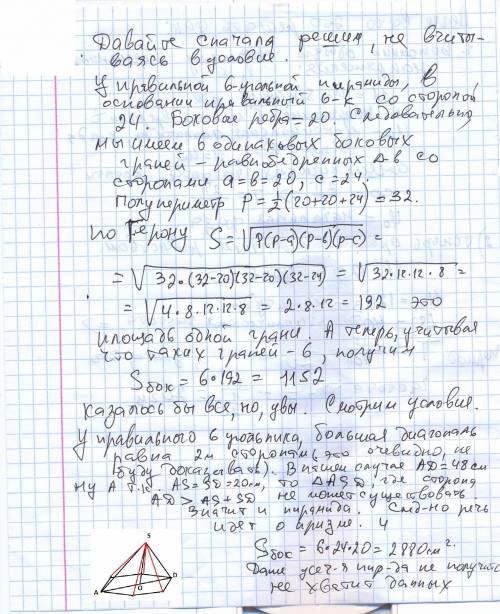 Давайте сначала решим, не вчиты-
ваясь в условие.
У правильной 6-угольной пирамиды, в
основании правильный 6-к со стороной
24. Боковые ребра = 20. Следовательно,
мы имеем 6 одинаковых боковых
граней - равнобедренных Δ-в со
сторонами a=b=20, c=24.
Полупериметр P = 1/2(20+20+24) = 32.
По Герону S = √P(P-a)(P-b)(p-c) =
= √32·(32-20)(32-20)(32-24) = √32·12·12·8 =
= √4·8·12·12·8 = 2·8·12 = 192 это
площадь одной грани. А теперь, учитывая
что таких граней - 6, получим
Sбок = 6·192 = 1152
Казалось бы все, но, увы. Смотрим условие.
У правильного 6угольника, большая диагональ
равна 2м сторонам, (это очевидно, не
буду доказывать). В нашем случае AD=48см
ну А т.к. AS=SD=20см, то ΔASD, где сторона
AD > AS+SD не может существовать.
Значит и пирамида. След-но речь
идет о призме. Ч
Sбок = 6·24·20 = 2880см².
Даже усеч-я пир-да не получится
не хватит данных
S
A
O
D